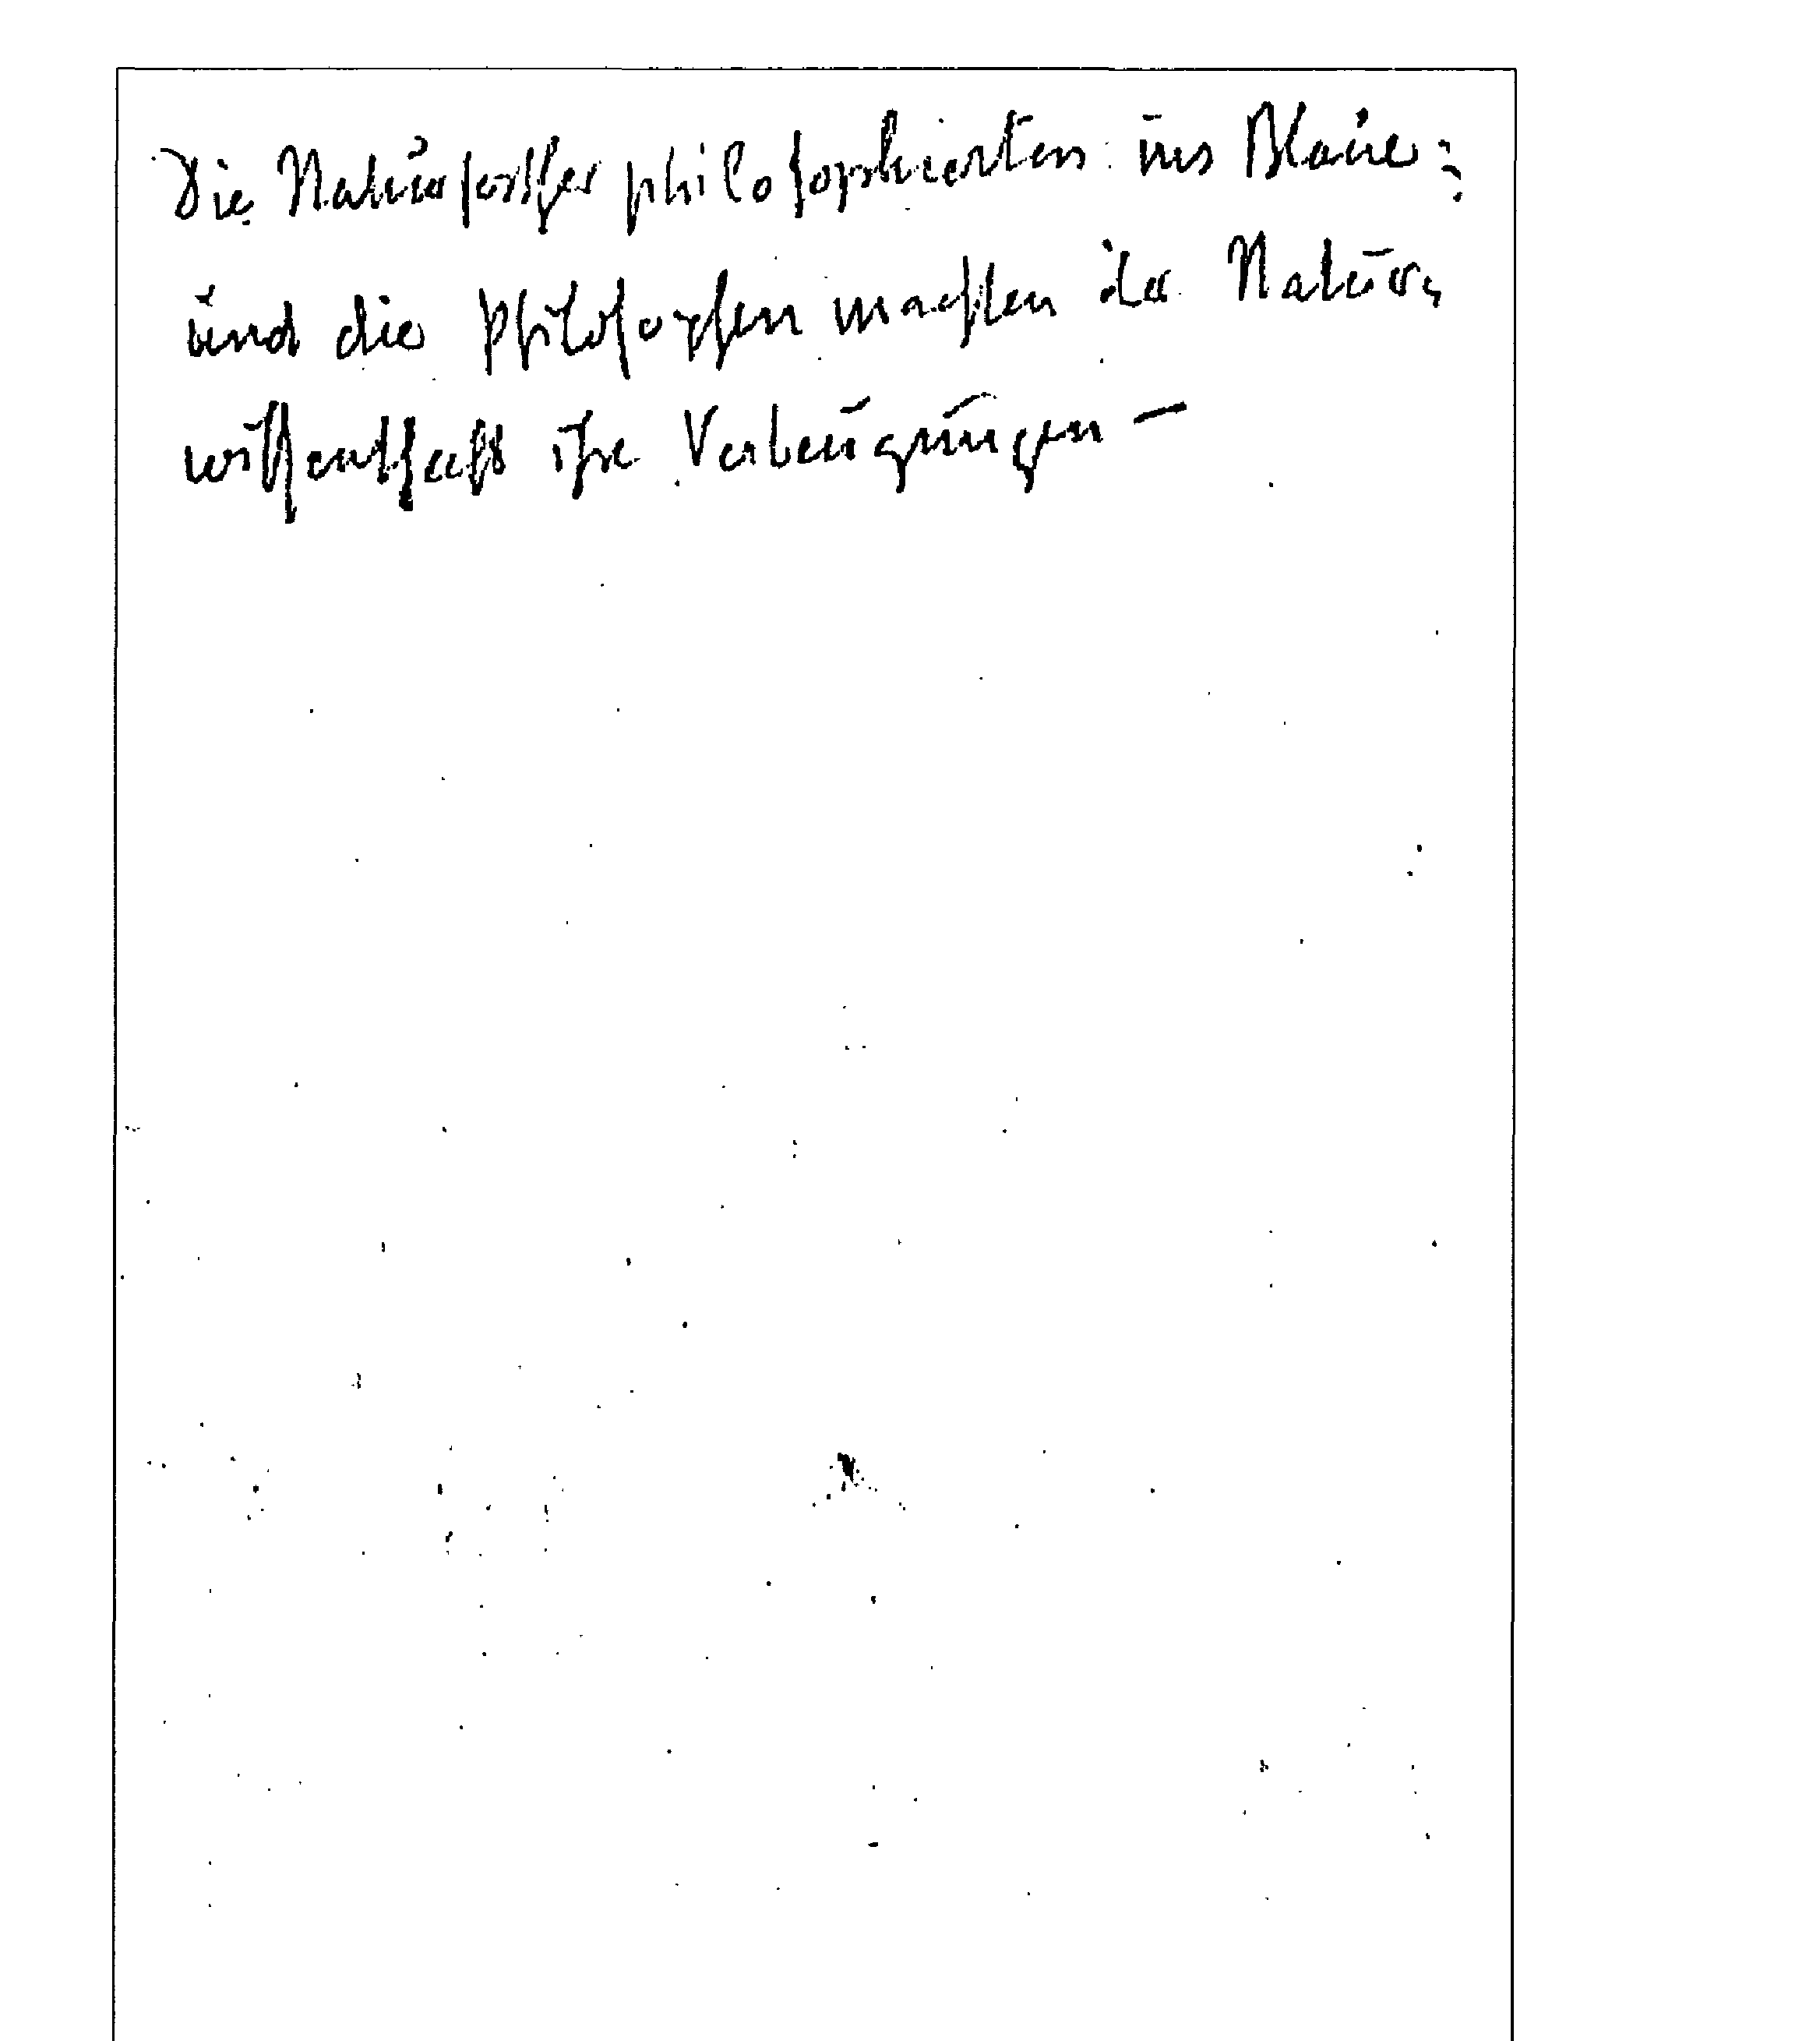 Die Naturforscher philosophierten ins Blaue;
und die Philosophen machten der Natur-
wissenschaft ihre Verbeugungen –